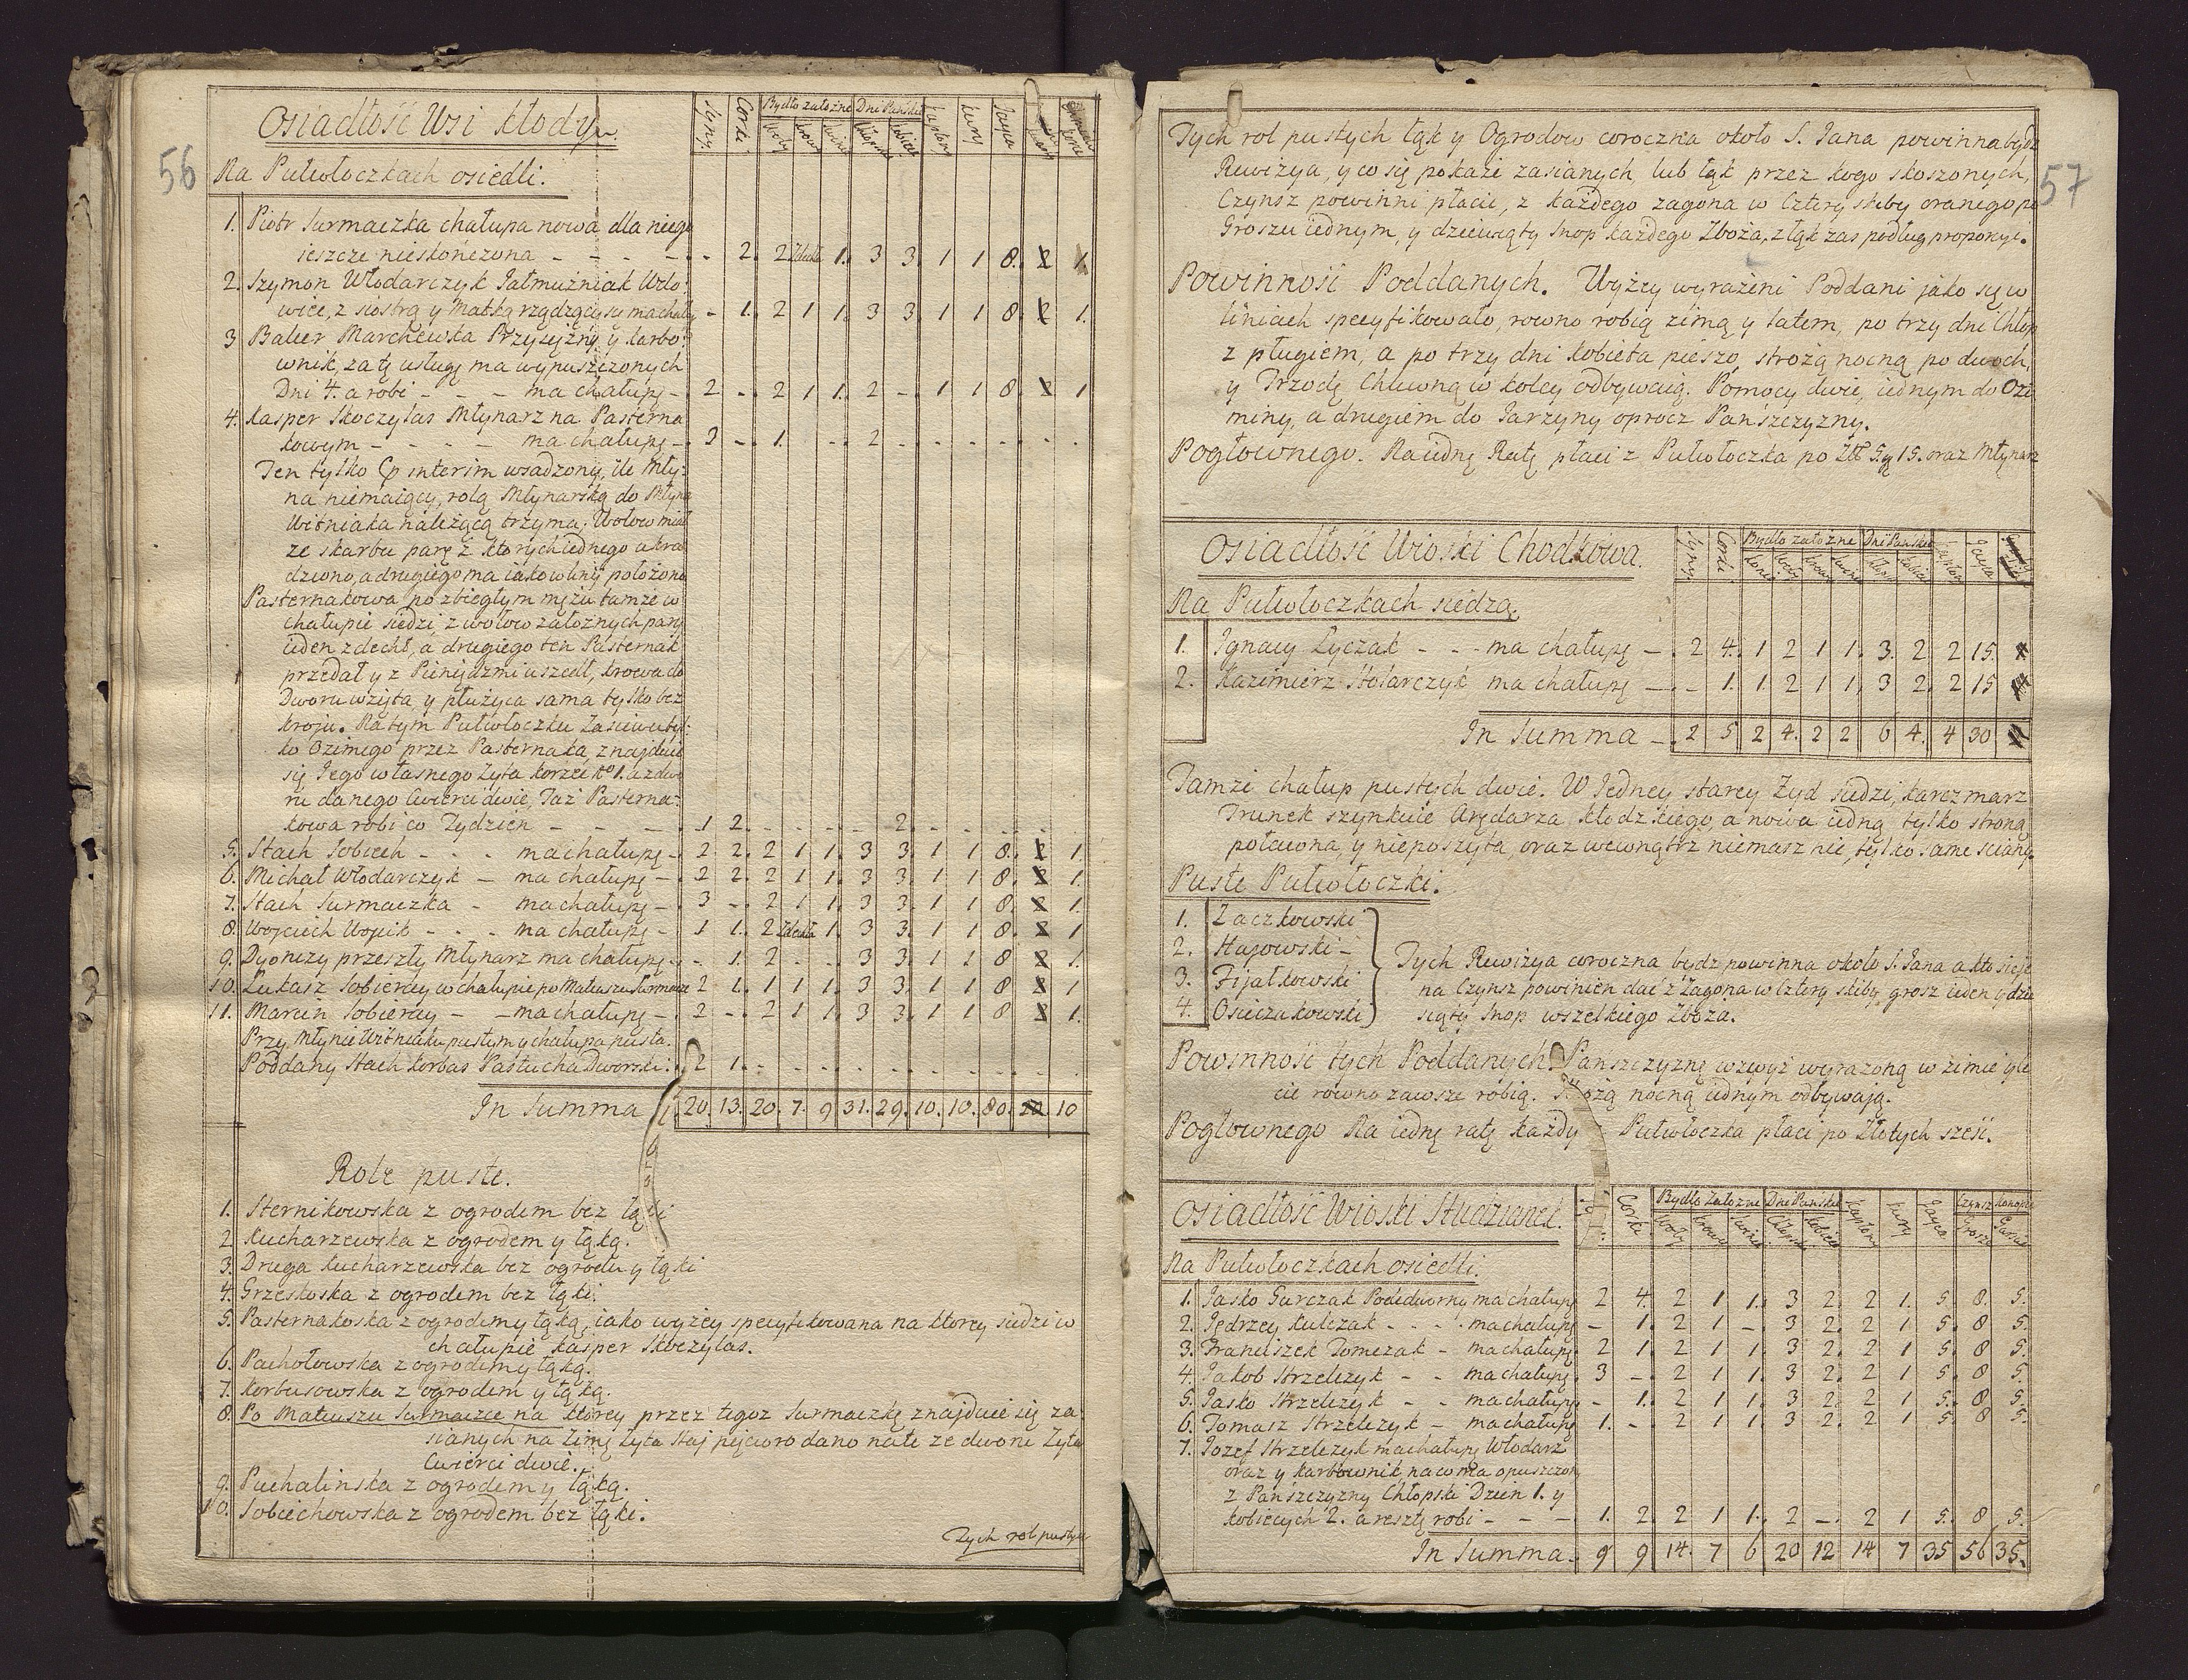 56
Osiadłość Wsi Kłody
Synowie Corki Bydło załozne Dni Pańskie Kapłony Kury Jayca
Woły Krowy Świnie Chłopskie Kobiece
Na Pułwłoczkach osiedli.
1. Piotr Surmaczka chałupa nowa dla niego
ieszcze nieskończona - - - - . 2. 2 Zdechła 1. 3 3. 1 1 8. 2 1.
2. Szymon Włodarczyk Jałmużniak Wdo:
wiec, z siostrą y Matką rządzący się ma chałupę - 1. 2 1 1. 3 3. 1 1 8. 2 1.
3 Balcer Marchewka Przysiężny y karbo:
wnik, za tę usługę ma wypuszczonych
Dni 4. a robi - - - ma chałupę - 2 - . 2 1 1. 2 - . 1 1 8 2 1
4. Kasper Skoczylas Młynarz na Pasterna
kowym - - - - ma chałupę - . 3 - . 1. . . 2 . . . . . . .
Ten tylko ad interim wsadzony, ile Mły:
na niemaiący, rolą Młynarską do Młyna
Wiśniaka należącą trzyma. Wołow miał
ze skarbu parę z ktorych iednego ukra
dziono, a drugiego ma iako w linij położono
Pasternakowa po zbiegłym mężu tamże w
chałupie siedzi, z wołow załoznych pary
ieden zdechł, a drugiego ten Pasternak
przedał y z Pieniędzmi uszedł, krowa do
Dworu wzięta, y płużyca sama tylko bez
kroju. Na tym Pułwłoczku Zasiewu tyl:
ko Ozimego przez Pasternaka, znajduie
się Jego własnego Żyta korzec No 1. a z dwo
ru danego Cwierci dwie, Taż Pasterna:
kowa robi co Tydzień - - - . 1 2. . . . . 2. . . . . .
5. Stach Sobiech - - - ma chałupę - . 2. 2. 2 1 1. 3 3. 1 1 8. 2 1.
6. Michał Włodarczyk - ma chałupę - . 2 2. 2 1 1. 3 3. 1 1 8. 2 1.
7. Stach Surmaczka - ma chałupę - . 3 - . 2 1 1. 3 3. 1 1 8. 2 1.
8. Woyciech Woycik - - - ma chałupę - 1 1. 2 Zdechła 1. 3 3. 1 1 8. 2 1
9. Dyonizy przeszły Młynarz ma chałupę - . 1. 2 . . 3 3. 1 1 8 2 1.
10. Łukasz Sobieray w chałupie po Mateuszu Surmacze 2 1. 1 1 1. 3 3. 1 1 8 2 1
11. Marcin Sobieray - - ma chałupę - . 2 - . 2 1 1. 3 3. 1 1 8 2 1.
Przy Młynie Wiśniaku pustym y chałupa pusta.
Poddany Stach Korbas Pastucha Dworski: 2 1. . . . . . . . . . .
In Summa 20. 13. 20. 7. 9 31. 29. 10. 10. 80. 10
Role puste.
1. Sternikowska z ogrodem bez łąki
2. Kucharzewska z ogrodem y łąką.
3. Druga Kucharzewska bez ogrodu y łąki
4. Grzeskoska z ogrodem bez łąki.
5. Pasternakoska z ogrodem y łąką, iako wyżey specyfikowana na ktorey siedzi w
chałupie Kasper Skoczylas.
6. Pachołowska z ogrodem y łąką.
7. Korbusowska z ogrodem y łąką.
8. Po Mateuszu Surmaczce na ktorey przez tegoż Surmaczkę znajduie się za:
sianych na Zimę Żyta Staj pięcioro dano na te ze dworu Żyta
Cwierci dwie.
9. Puchalinska z ogrodem y łąką.
10. Sobiechowska z ogrodem bez łąki.
Tych rol pustych
57
Tych rol pustych łąk y Ogrodow coroczna około S. Jana powinna bydz
Rewizya, y co się pokaże zasianych, lub łąk przez kogo skoszonych,
Czynsz powinni płacić, z każdego zagona w Cztery skiby oranego po
Groszu iednym, y dziewiąty Snop każdego Zboża, z łąk zaś podług proporcyi.
Powinność Poddanych. Wyżey wyrażeni Poddani jako się w
liniach specyfikowało, rowno robią zimą y latem, po trzy dni Chłop
z pługiem, a po trzy dni kobieta pieszo, strożą nocną po dwoch,
y Trzodę Chlewną w koley odbywaią. Pomocy dwie, iednym do Ozi
miny, a drugiem do Jarzyny oprocz Pańszczyzny.
Pogłownego. Na iednę Ratę płaci z Pułwłoczka po Zł 5. g 15. oraz Młynarz
Osiadłość Wioski Chodkowa.
Synowie Corki Bydło załozne Dni Pańskie Kapłony Jayca
Konie Woły Krowy Świnie Chłopskie Kobiece
Na Pułwłoczkach siedzą.
1. Ignacy Łyczak - - - ma chałupę - . 2 4. 1 2 1 1. 3. 2 2 15.
2. Kazimierz Stolarczyk ma chałupę - . - 1. 1. 2 1 1, 3 2. 2 15
In Summa - . 2 5 2 4. 2 2 6 4. 4 30
Tamże chałup pustych dwie. W Jedney starey Żyd siedzi, karczmarz
Trunek szynkuie Arędarza Kłodzkiego, a nowa iedną tylko stroną
połacona, y nieposzyta, oraz wewnątrz niemasz nic, tylko same sciany.
Puste Pułwłoczki.
1. Zaczkowski
2. Stajowski -
3. Fijałkowski
4. Osieczakowski
Tych Rewizya coroczna bydz powinna około S. Jana a kto sieje
na Czynsz powinien dać z Zagona w Cztery skiby grosz ieden y dzie
siąty Snop wszelkiego Zboża.
Powinność tych Poddanych. Panszczyznę wzwyż wyrażoną w zimie y le
cie rowno zawsze robią. Strożą nocną iednym odbywają.
Pogłownego Na iednę ratę każdy z Pułwłoczka płaci po Złotych sześć.
Osiadłość Wioski Studzianek.
Corki Bydło Załozne Dni Pańskie Kapłony Kury Jayca Czynsz Konopie
Woły Krowy Świnie Chłopskie Kobiece Grosze
Na Pułwłoczkach osiedli.
1. Jasko Gurczak Podedworny ma chałupę 2 4. 2 1 1. 3 2. 2 1. 5. 8. 5.
2. Jędrzey Kulczak - - - . ma chałupę - 1. 2 1 - . 3 2. 2 1 5. 8 5.
3. Franciszek Tomczak - ma chałupę. 2 1. 2 1 1. 3 2. 2 1 5. 8 5.
4. Jakob Strzelczyk - - ma chałupę. 3 - . 2 1 1. 3 2. 2 1 5. 8 5.
5. Jasko Strzelczyk - - ma chałupę - 1. 2 1 1. 3 2. 2 1 5. 8 5.
6. Tomasz Strzelczyk - ma chałupę 1. - . 2 1 1. 3 2. 2 1 5. 8 5.
7. Jozef Strzelczyk ma chałupę Włodarz
oraz y karbownik, na co ma opuszczony
z Pańszczyzny Chłopski Dzień 1. y
kobiecych 2. a resztę robi - - - 1. 2. 2 1 1. 2 - . 2 1 5. 8 5.
In Summa. 9 9 14. 7 6 20 12 14 7 35 56 35.